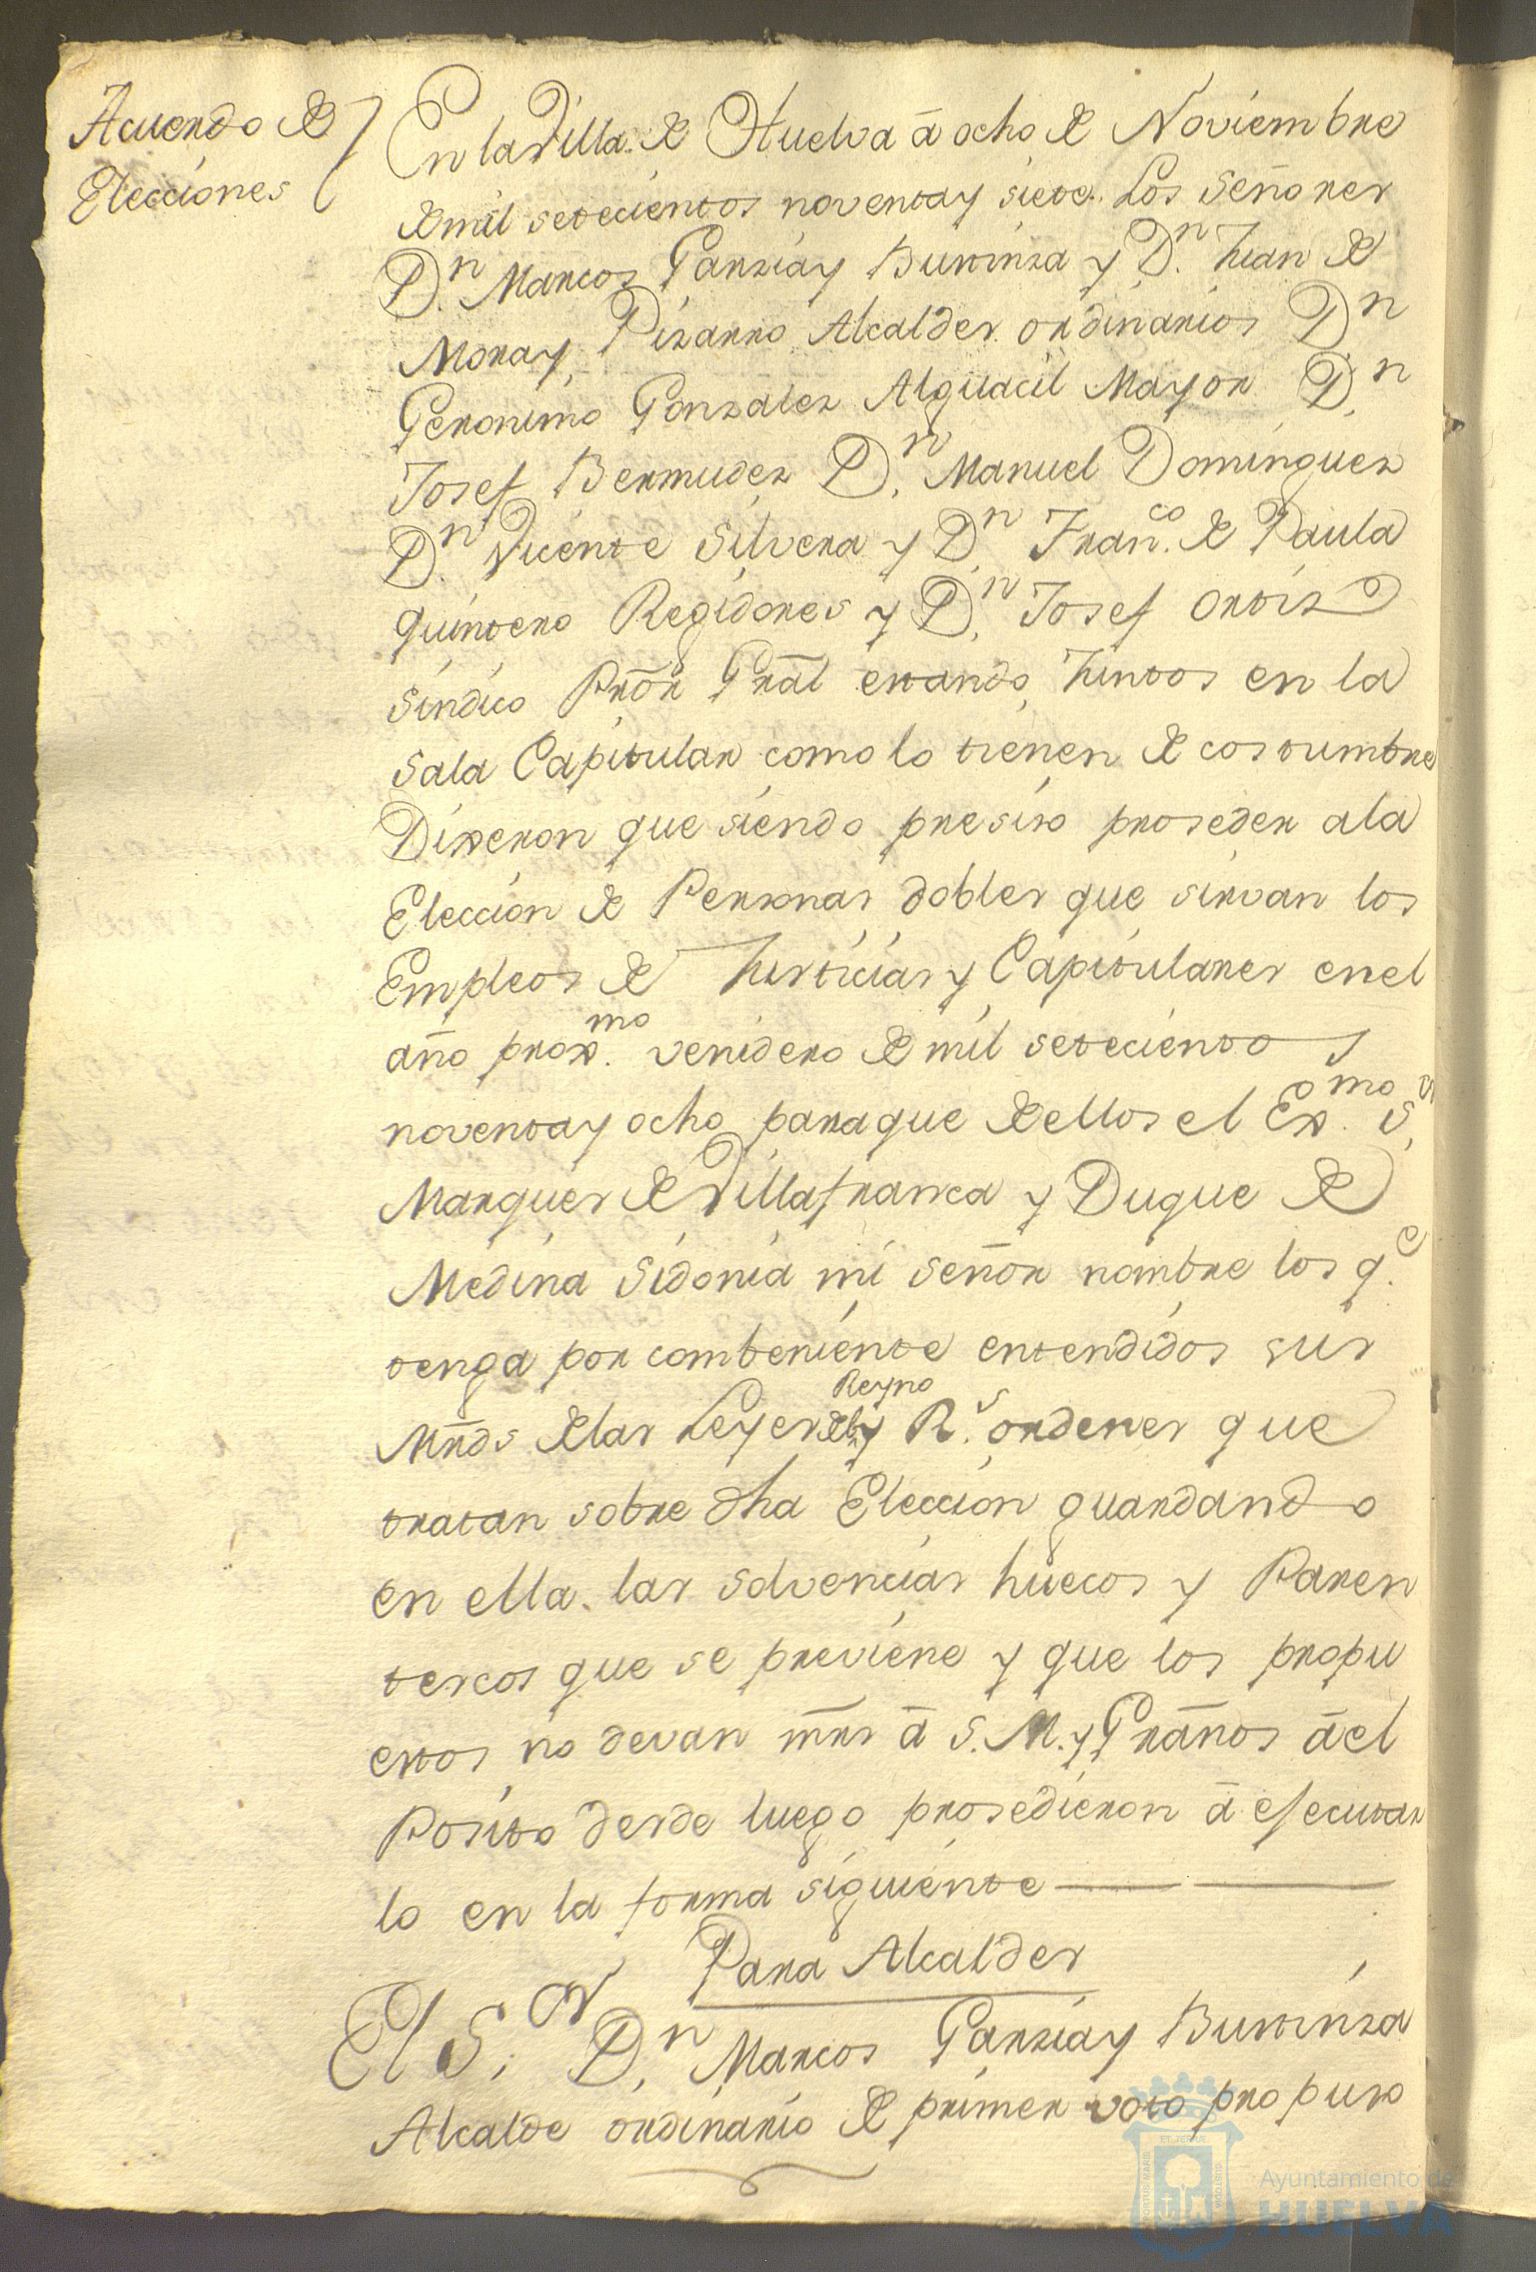 Acuerdo de
Elecciones
En la Villa de Huelva â ocho de Noviembre
de mil setecientos noventa y siete. Los Señores
D.n Marcos Garzia y Bustinza y D.n Juan de
Mora y Pizarro Alcaldes ordinarios D.n
Geronimo Gonzalez Alguacil Mayor D.n
Josef Bermudez D.n Manuel Dominguez
D.n Vicente Silvera y D.n Fran.co de Paula
quintero Regidores y D.n Josef Ortiz
Sindico Prõr Grãl estando Juntos en la
Sala Capitular como lo tienen de costumbre
Dixeron que siendo presiso proseder a la
Eleccion de Personas dobles que sirvan los
Empleos de Justicias y Capitulares en el
año prox.mo venidero de mil setecientos
noventa y ocho para que de ellos el Ex.mo S.r
Marques de Villafranca y Duque de
Medina Sidonia mi señor nombre los q.e
tenga por combeniente entendidos sus
Mrds de las Leyes del Reyno y R.s ordenes que
tratan sobre dha Eleccion guardando
en ella las solvencias huecos y Paren
tescos que se previene y que los propu
estos no devan mrs â S. M. y Grãnos âel
Posito desde luego prosedieron â esecutar
lo en la forma siguiente
Para Alcaldes
El S.or D.n Marcos Garzia y Bustinza
Alcalde ordinario de primer voto propuso
Ayuntamiento de
HUELVA